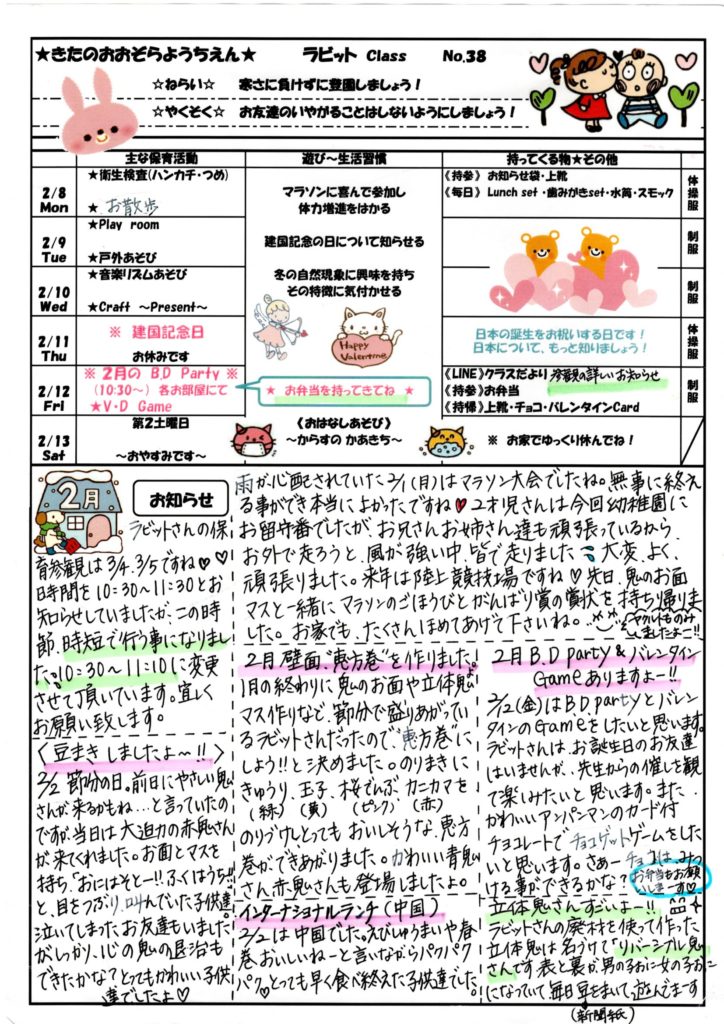 ★きたのおおぞらようちえん★　ラビット Class　No.38
☆ねらい☆　寒さに負けずに登園しましょう！
☆やくそく☆　お友達のいやがることはしないようにしましょう！
主な保育活動　遊び～生活習慣　持ってくる物★その他
2/8 Mon
★衛生検査(ハンカチ・つめ)
★お散歩
マラソンに喜んで参加し
体力増進をはかる
《持参》お知らせ袋・上靴
《毎日》Lunch set・歯みがきset・水筒・スモック
体操服
2/9 Tue
★Play room
★戸外あそび
建国記念の日について知らせる
制服
2/10 Wed
★音楽リズムあそび
★Craft ～Present～
冬の自然現象に興味を持ち
その特徴に気付かせる
制服
2/11 Thu
※ 建国記念日
お休みです
Happy
Valentine
日本の誕生をお祝いする日です！
日本について、もっと知りましょう！
体操服
2/12 Fri
※ 2月の B.D Party ※
(10:30～) 各お部屋にて
★V・D Game
★ お弁当を持ってきてね ★
《LINE》クラスだより 参観の詳しいお知らせ
《持参》お弁当
《持帰》上靴・チョコ・バレンタインCard
制服
2/13 Sat
第2土曜日
～おやすみです～
《おはなしあそび》
～からすの かあきち～
※ お家でゆっくり休んでね！
2月
お知らせ
ラビットさんの保
育参観は3/4、3/5ですね♡♡
時間を10:30～11:30とお
知らせしていましたが、この時
節、時短で行う事になりまし
た。10:30～11:10に変更
させて頂いています。宜しく
お願い致します。
〈豆まきしましたよ～!!〉
2/2 節分の日。前日にやさしい鬼
さんが来るかもね…と言っていたの
ですが当日は大迫力の赤鬼さん
が来てくれました。お面とマスを
持ち、「おにはそとー!!ふくはうち!!」
と、目をつぶり、叫んでいた子供達。
泣いてしまったお友達もいました
がしっかり、心の鬼の退治も
できたかな？とってもかわいい子供
達でしたよ♡
雨が心配されていた2/1(月)はマラソン大会でしたね。無事に終え
る事ができ本当によかったですね♥2才児さんは今回幼稚園に
お留守番でしたが、お兄さんお姉さん達も頑張っているから
お外で走ろうと、風が強い中、皆で走りました 大変、よく、
頑張りました。来年は陸上競技場ですね♡先日、鬼のお面
マスと一緒にマラソンのごほうびとがんばり賞の賞状を持ち帰りま
した。お家でも、たくさんほめてあげて下さいね。
ヤクルトものみ
しましたよー!!
2月壁面“恵方巻”を作りました。
1月の終わりに鬼のお面や立体鬼、
マス作りなど、節分で盛りあがってい
るラビットさんだったので、“恵方巻”に
しよう!!と決めました。のりまきに
きゅうり、玉子、桜でんぶ カニカマを
(緑) (黄) (ピンク) (赤)
のりづけしとっても おいしそうな、恵方
巻ができあがりました。かわいい青鬼
さん赤鬼さんも登場しましたよ。
インターナショナルランチ(中国)
2/2は中国でした。えびしゅうまいや春
巻、おいしいねーと言いながらパクパク
パク♡とっても早く食べ終えた子供達でした。
2月B.D party & バレンタイン
Gameありますよー!!
2/12(金)はB.D partyとバレン
タインのGameをしたいと思います。
ラビットさんは、お誕生日のお友達
はいませんが、先生からの催しを観
て楽しみたいと思います。また
かわいいアンパンマンのカード付
チョコレートでチョコゲットゲームをした
いと思います。さぁーチョコはみつ
ける事ができるかな？
お弁当もお願
いしまーす♡
立体鬼さんすごいよー!!
ラビットさんの廃材を使って作った
立体鬼は名づけて「リバーシブル鬼
さん」です。表と裏が、男の子おに女の子おに
になっていて毎日豆をまいて、遊んでます
(新聞紙)